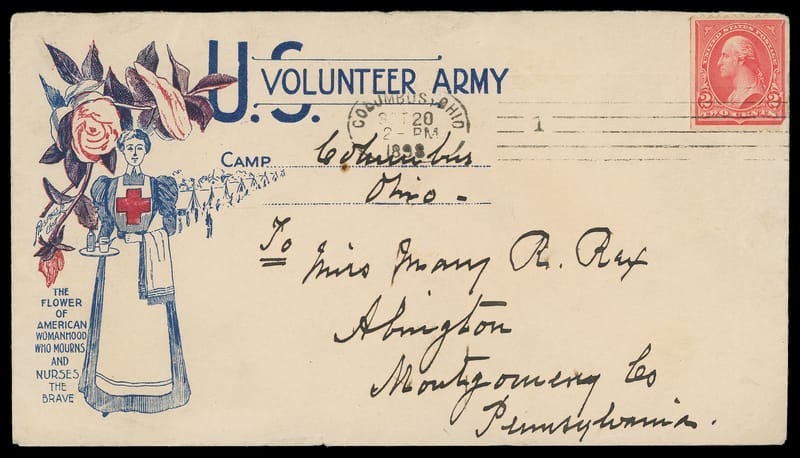 U.S. VOLUNTEER ARMY
UNITED STATES POSTAGE
2 2
TWO CENTS
COLUMBUS, OHIO
20
2- PM
1898
1
CAMP Columbus
Ohio -
To
Miss Mary R. Rex
Abington
Montgomery Co
Pennsylvania.
THE
FLOWER
OF
AMERICAN
WOMANHOOD
WHO MOURNS,
AND
NURSES
THE
BRAVE